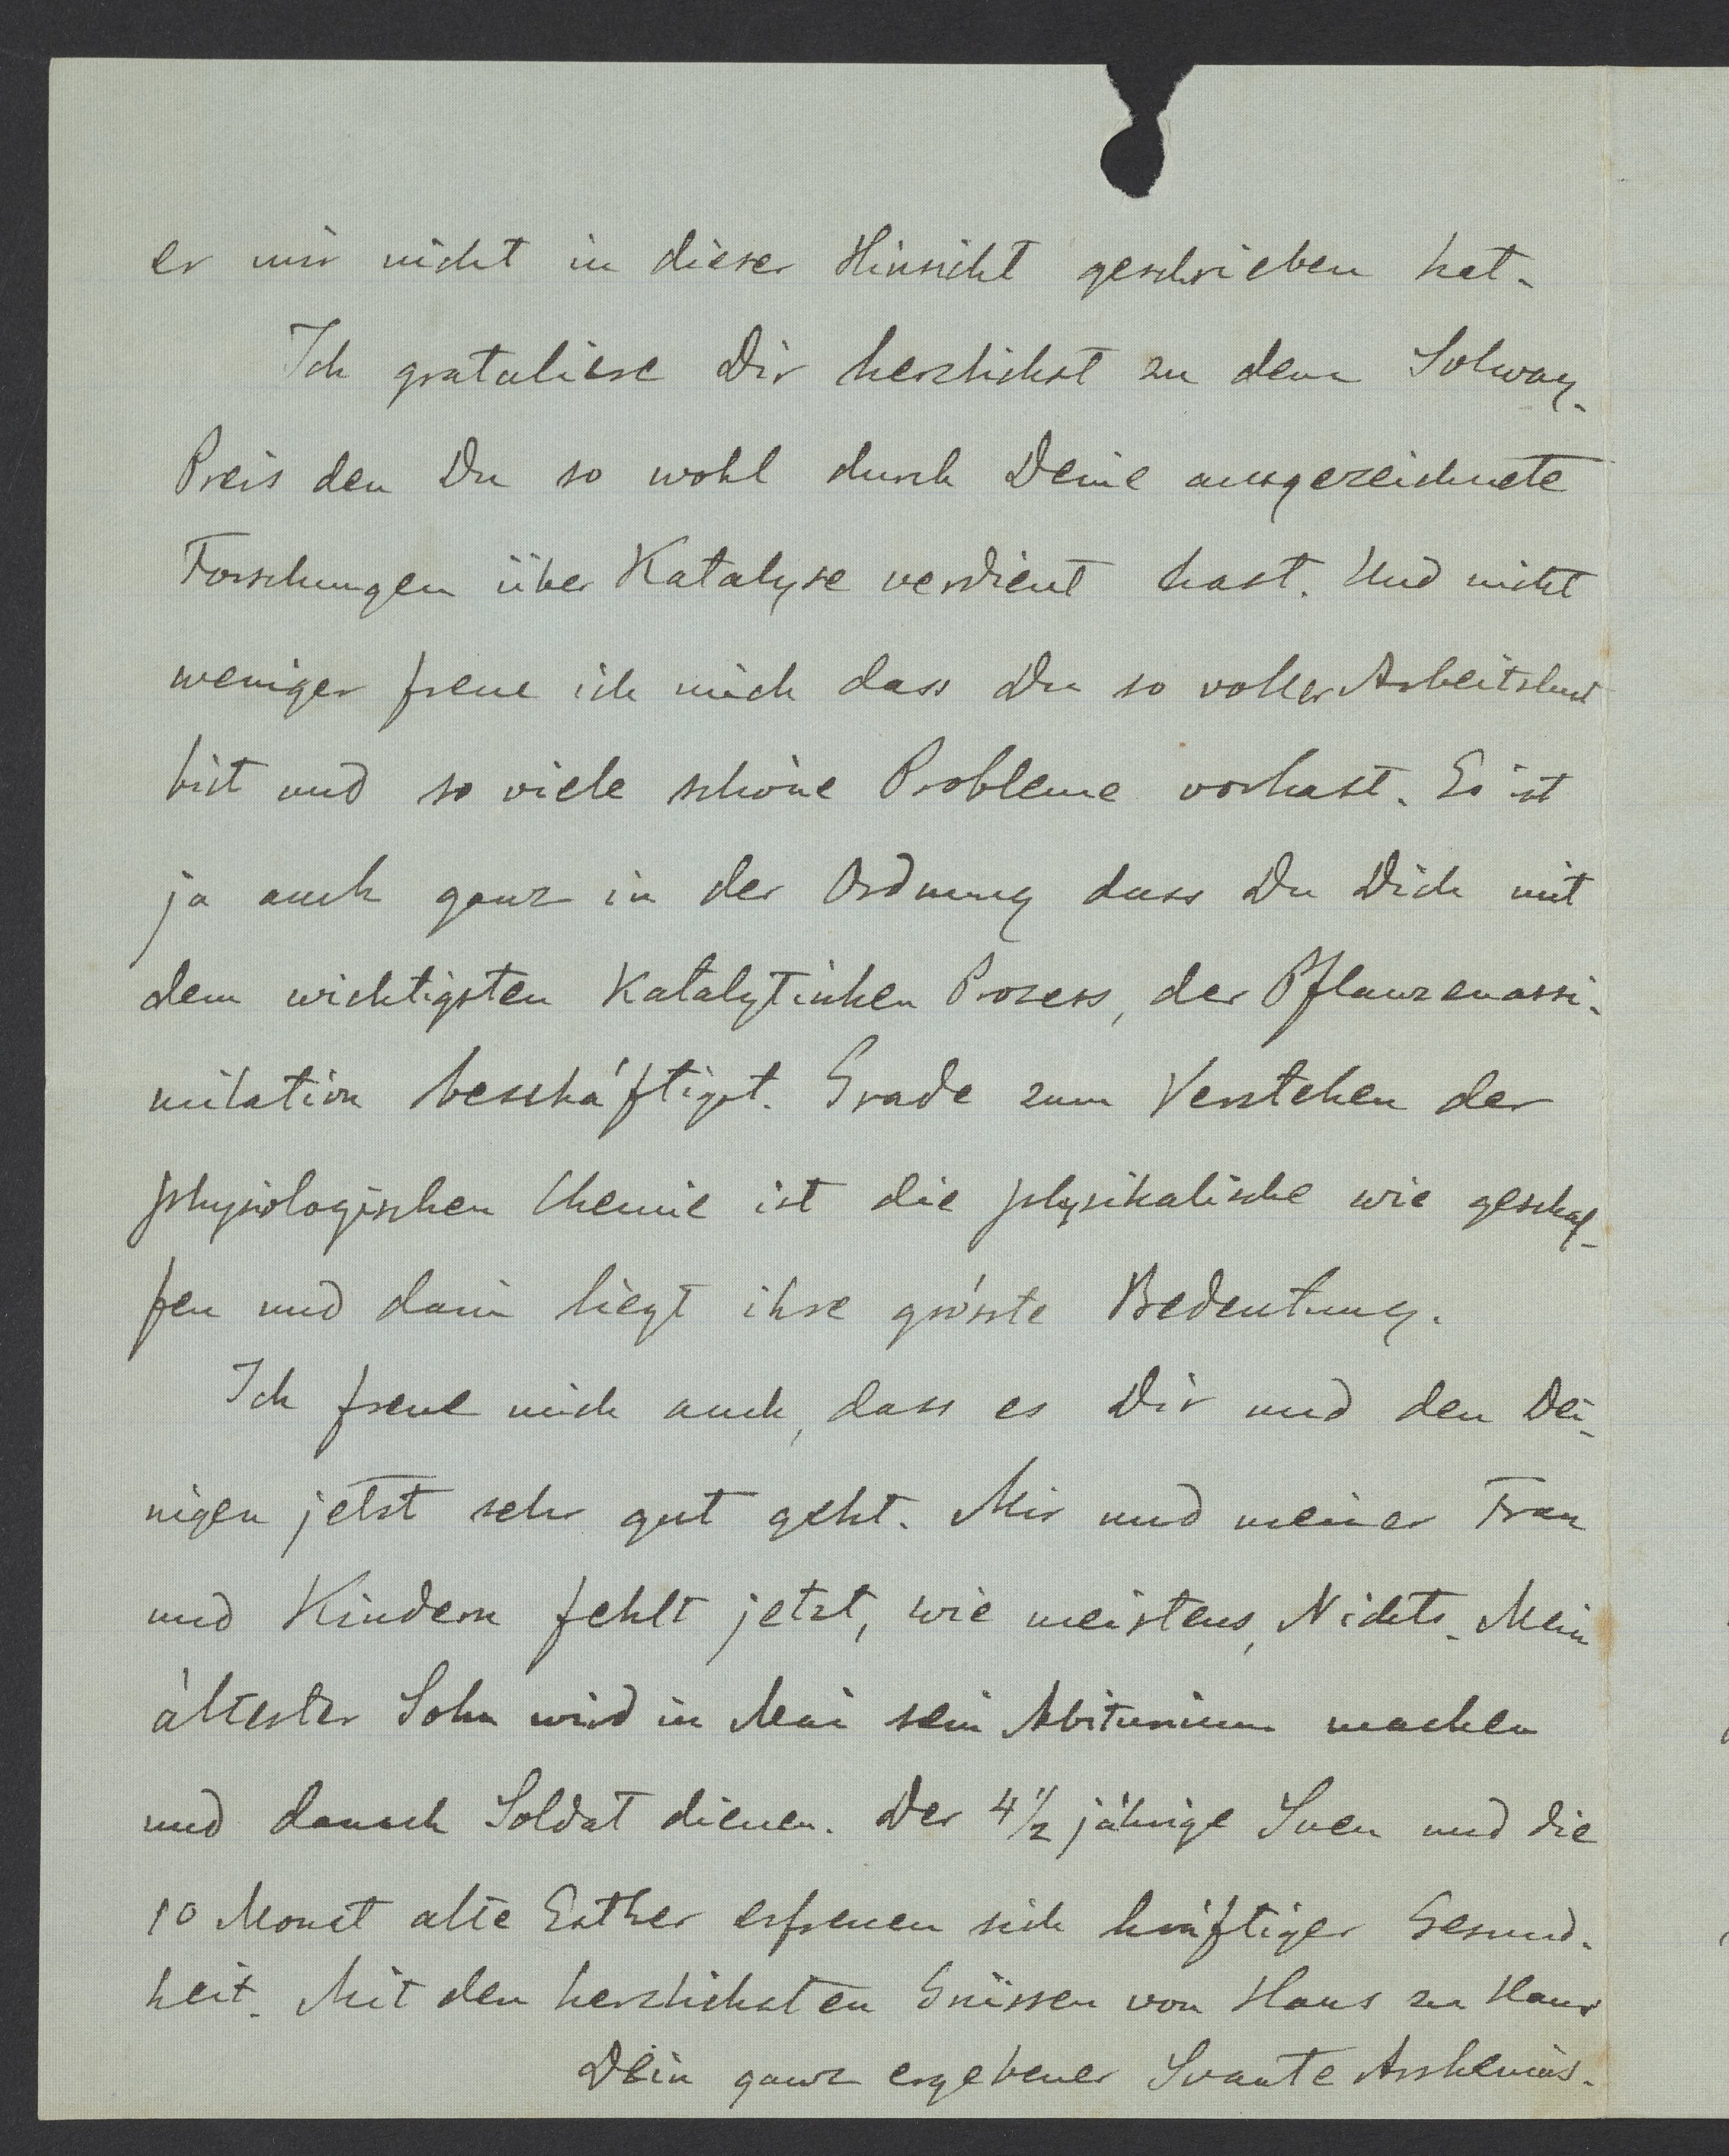 er mir nicht in dieser Hinsicht geschrieben hat.
Ich gratuliere Dir herzlichst zu dem Solway-
Preis den Du so wohl durch Deine ausgezeichnete
Forschungen über Katalyse verdient hast. Und nicht
weniger freue ich mich dass Du so voller Arbeitslust
bist und so viele schöne Probleme vorhast. Es ist
ja auch ganz in der Ordnung dass Du Dich mit
dem wichtigsten Katalytischen Prozess, der Pflanzenassi-
milation beschäftigst. Grade zum Verstehen der
physiologischen Chemie ist die physikalische wie geschaf-
fen und darin liegt ihre grösste Bedeutung.
Ich freue mich auch, dass es Dir und den Dei-
nigen jetzt sehr gut geht. Mir und meiner Frau
und Kindern fehlt jetzt, wie meistens, Nichts. Mein
ältester Sohn wird in Mai sein Abiturium machen
und danach Soldat dienen. Der 4 1/2 jährige Sven und die
10 Monat alte Esther erfreuen sich kräftiger Gesund-
heit. Mit den herzlichsten Grüssen von Haus zu Haus
Dein ganz ergebener Svante Arrhenius.